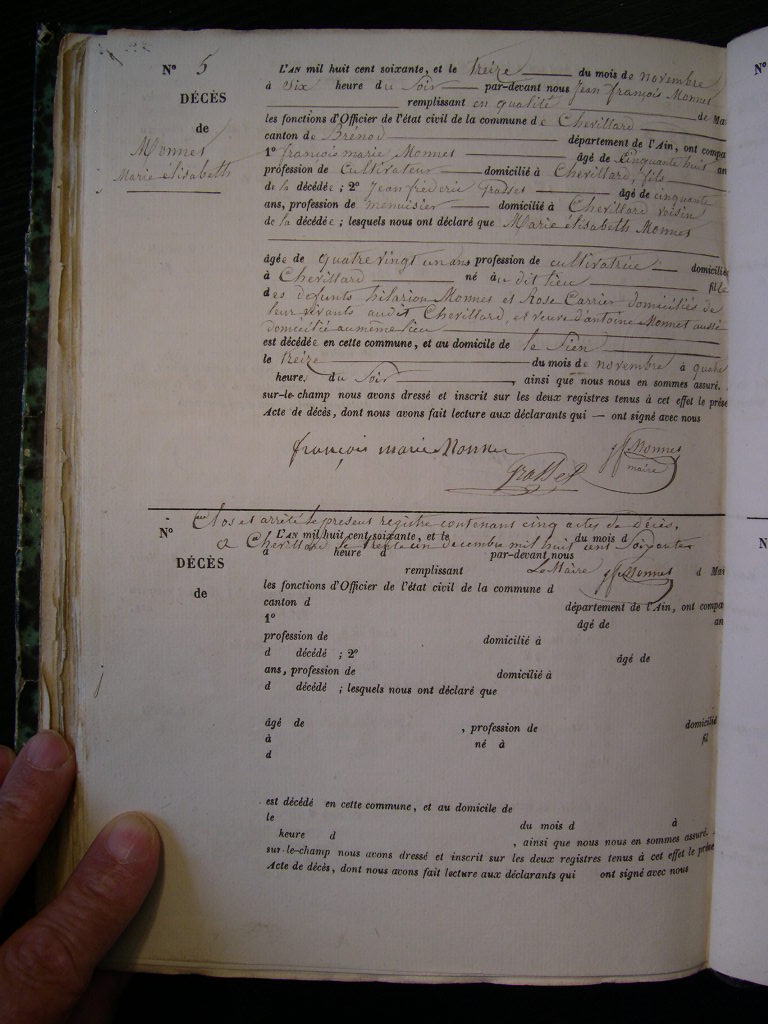 N° 5
DÉCÈS
de
Monnet
Marie élisabeth
L'AN mil huit cent soixante, et le treize du mois de novembre
à Six heure du Soir par-devant nous Jean françois Monnet
remplissant en qualité de Mai
les fonctions d'Officier de l'état civil de la commune de Chevillard
canton de Brénod département de l'Ain, ont compa
1° françois marie Monnet âgé de Cinquante huit an
profession de Cultivateur domicilié à Chevillard, fils
de la décédée ; 2° Jean fréderic Grosset âgé de cinquante
ans, profession de menuisier domicilié à Chevillard voisin
de la décédée ; lesquels nous ont déclaré que Marie élisabeth Monnet
âgée de quatre vingt un ans profession de cultivatrice domicilié
à Chevillard né au dit lieu fille
des defunts hilarion Monnet et Rose Carrier domiciliés de
leur vivants audit Chevillard, et veuve d'antoine Monnet aussi
domicilié au même lieu
est décédée en cette commune, et au domicile de le Sien
le treize du mois de novembre à quatre
heure. du Soir , ainsi que nous nous en sommes assuré.
sur-le-champ nous avons dressé et inscrit sur les deux registres tenus à cet effet le prése
Acte de décès, dont nous avons fait lecture aux déclarants qui — ont signé avec nous
françois marie Monnet
jf Monnet
maire
Grosset
Clos et arrêté le present registre contenant cinq actes de Décès,
N°
L'AN mil huit cent soixante, et le du mois d
a Chevillard le trente un decembre mil huit cent Soixante
à heure d par-devant nous
DÉCÈS
Le Maire jf Monnet
remplissant d Mai
de
les fonctions d'Officier de l'état civil de la commune d
canton d département de l'Ain, ont compa
1° âgé de an
profession de domicilié à
d décédé ; 2° âgé de
ans, profession de domicilié à
d décédé ; lesquels nous ont déclaré que
âgé de , profession de domicilié
à né à fil
d
est décédé en cette commune, et au domicile de
le du mois d à
heure d , ainsi que nous nous en sommes assuré.
sur-le-champ nous avons dressé et inscrit sur les deux registres tenus à cet effet le prése
Acte de décès, dont nous avons fait lecture aux déclarants qui ont signé avec nous
N°
N